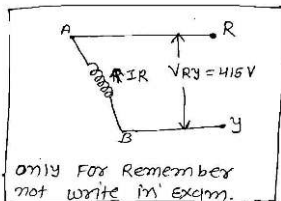 A R
IR VRY = 415 V
B Y
only For Remember
not write in Exam.